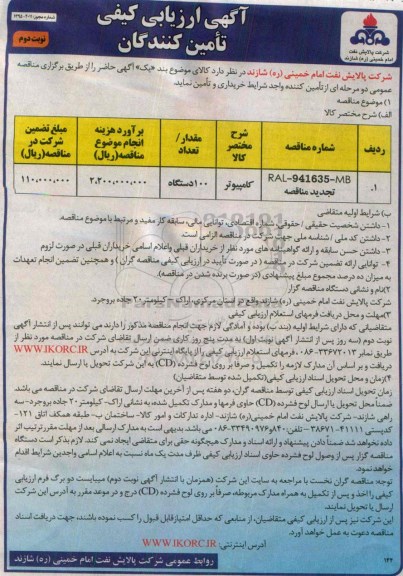 شماره مجوز: ۱۳۹۵.۴۰۷
آگهی ارزیابی کیفی
تأمین کنندگان
نوبت دوم
شرکت پالایش نفت
امام خمینی (ره) شازند
شرکت پالایش نفت امام خمینی (ره) شازند در نظر دارد کالای موضوع بند «یک» آگهی حاضر را از طریق برگزاری مناقصه
عمومی دو مرحله ای از تأمین کننده واجد شرایط خریداری و تأمین نماید.
۱) موضوع مناقصه
الف) شرح مختصر کالا
ردیف
شماره مناقصه
شرح مختصر کالا
مقدار/ تعداد
برآورد هزینه انجام موضوع مناقصه(ریال)
مبلغ تضمین شرکت در مناقصه(ریال)
۱.
RAL-941635-MB
تجدید مناقصه
کامپیوتر
۱۰۰دستگاه
۲,۲۰۰,۰۰۰,۰۰۰
۱۱۰,۰۰۰,۰۰۰
ب) شرایط اولیه متقاضی
۱- داشتن شخصیت حقیقی / حقوقی، کد اقتصادی، توانایی مالی، سابقه کار مفید و مرتبط با موضوع مناقصه.
۲- داشتن کد ملی / شناسه ملی جهت شرکت در مناقصه الزامی است.
۳- داشتن حسن سابقه و ارائه گواهینامه های مورد نظر از خریداران قبلی و اعلام اسامی خریداران قبلی در صورت لزوم
۴- توانایی ارائه تضمین شرکت در مناقصه ( در صورت تأیید در ارزیابی کیفی مناقصه گران ) و همچنین تضمین انجام تعهدات
به میزان ده درصد مجموع مبلغ پیشنهادی (در صورت برنده شدن در مناقصه).
۲)نام و نشانی دستگاه مناقصه گزار
شرکت پالایش نفت امام خمینی (ره) شازند واقع در استان مرکزی، اراک – کیلومتر ۲۰ جاده بروجرد.
۳)مهلت و محل دریافت فرمهای استعلام ارزیابی کیفی
متقاضیانی که دارای شرایط اولیه (بند ب) بوده و آمادگی لازم جهت انجام مناقصه مذکور را دارند می توانند پس از انتشار آگهی
نوبت دوم (سه روز پس از انتشار آگهی نوبت اول) به مدت پنج روز کاری ضمن ارسال تقاضای شرکت در مناقصه مورد نظر از
طریق نمابر ۳۳۶۷۲۰۱۳-۰۸۶، فرمهای استعلام ارزیابی کیفی را از پایگاه اینترنتی این شرکت به آدرس WWW.IKORC.IR
دریافت و بر اساس آن مدارک لازمه را تکمیل و صرفاً بر روی لوح فشرده (CD) به این شرکت تحویل یا ارسال نمایند.
۴)زمان و محل تحویل اسناد ارزیابی کیفی(تکمیل شده توسط متقاضیان)
زمان تحویل اسناد ارزیابی کیفی توسط مناقصه گران، دو هفته پس از آخرین مهلت ارسال تقاضای شرکت در مناقصه می باشد.
ضمناً محل تحویل یا ارسال لوح فشرده (CD) حاوی فرمها و مدارک تکمیل شده، به نشانی اراک- کیلومتر ۲۰ جاده بروجرد- سه
راهی شازند- شرکت پالایش نفت امام خمینی(ره) شازند- اداره تدارکات و امور کالا- ساختمان ب- طبقه همکف اتاق ۱۲۱-
کدپستی ۴۱۱۱۱-۳۸۶۷۱ - تلفن: ۸۴۰و۳۳۴۹۰۹۷۶-۰۸۶ می باشد. بدیهی است به مدارک ارسالی بعد از مهلت مقرر ترتیب اثر
داده نخواهد شد ضمناً دادن پیشنهاد و ارائه اسناد و مدارک هیچگونه حقی برای متقاضی ایجاد نمی کند. لازم بذکر است دستگاه
مناقصه گزار پس از وصول لوح فشرده حاوی اسناد ارزیابی کیفی ظرف مدت یک ماه نسبت به اعلام اسامی واجدین شرایط اقدام
خواهد نمود.
توجه مناقصه گران نخست با مراجعه به سایت این شرکت (همزمان با انتشار آگهی نوبت دوم) میبایست دو برگ فرم ارزیابی
کیفی را اخذ و پس از تکمیل به همراه مدارک مربوطه، صرفاً بر روی لوح فشرده (CD) درج و در موعد مقرر به آدرس این شرکت
ارسال یا تحویل نمایند.
این شرکت نیز پس از ارزیابی کیفی متقاضیان، از منابعی که حداقل امتیاز قابل قبول را کسب نموده باشند، جهت دریافت اسناد
مناقصه دعوت به عمل خواهد آورد.
آدرس اینترنتی: WWW.IKORC.IR
۱۴۲
روابط عمومی شرکت پالایش نفت امام خمینی (ره) شازند